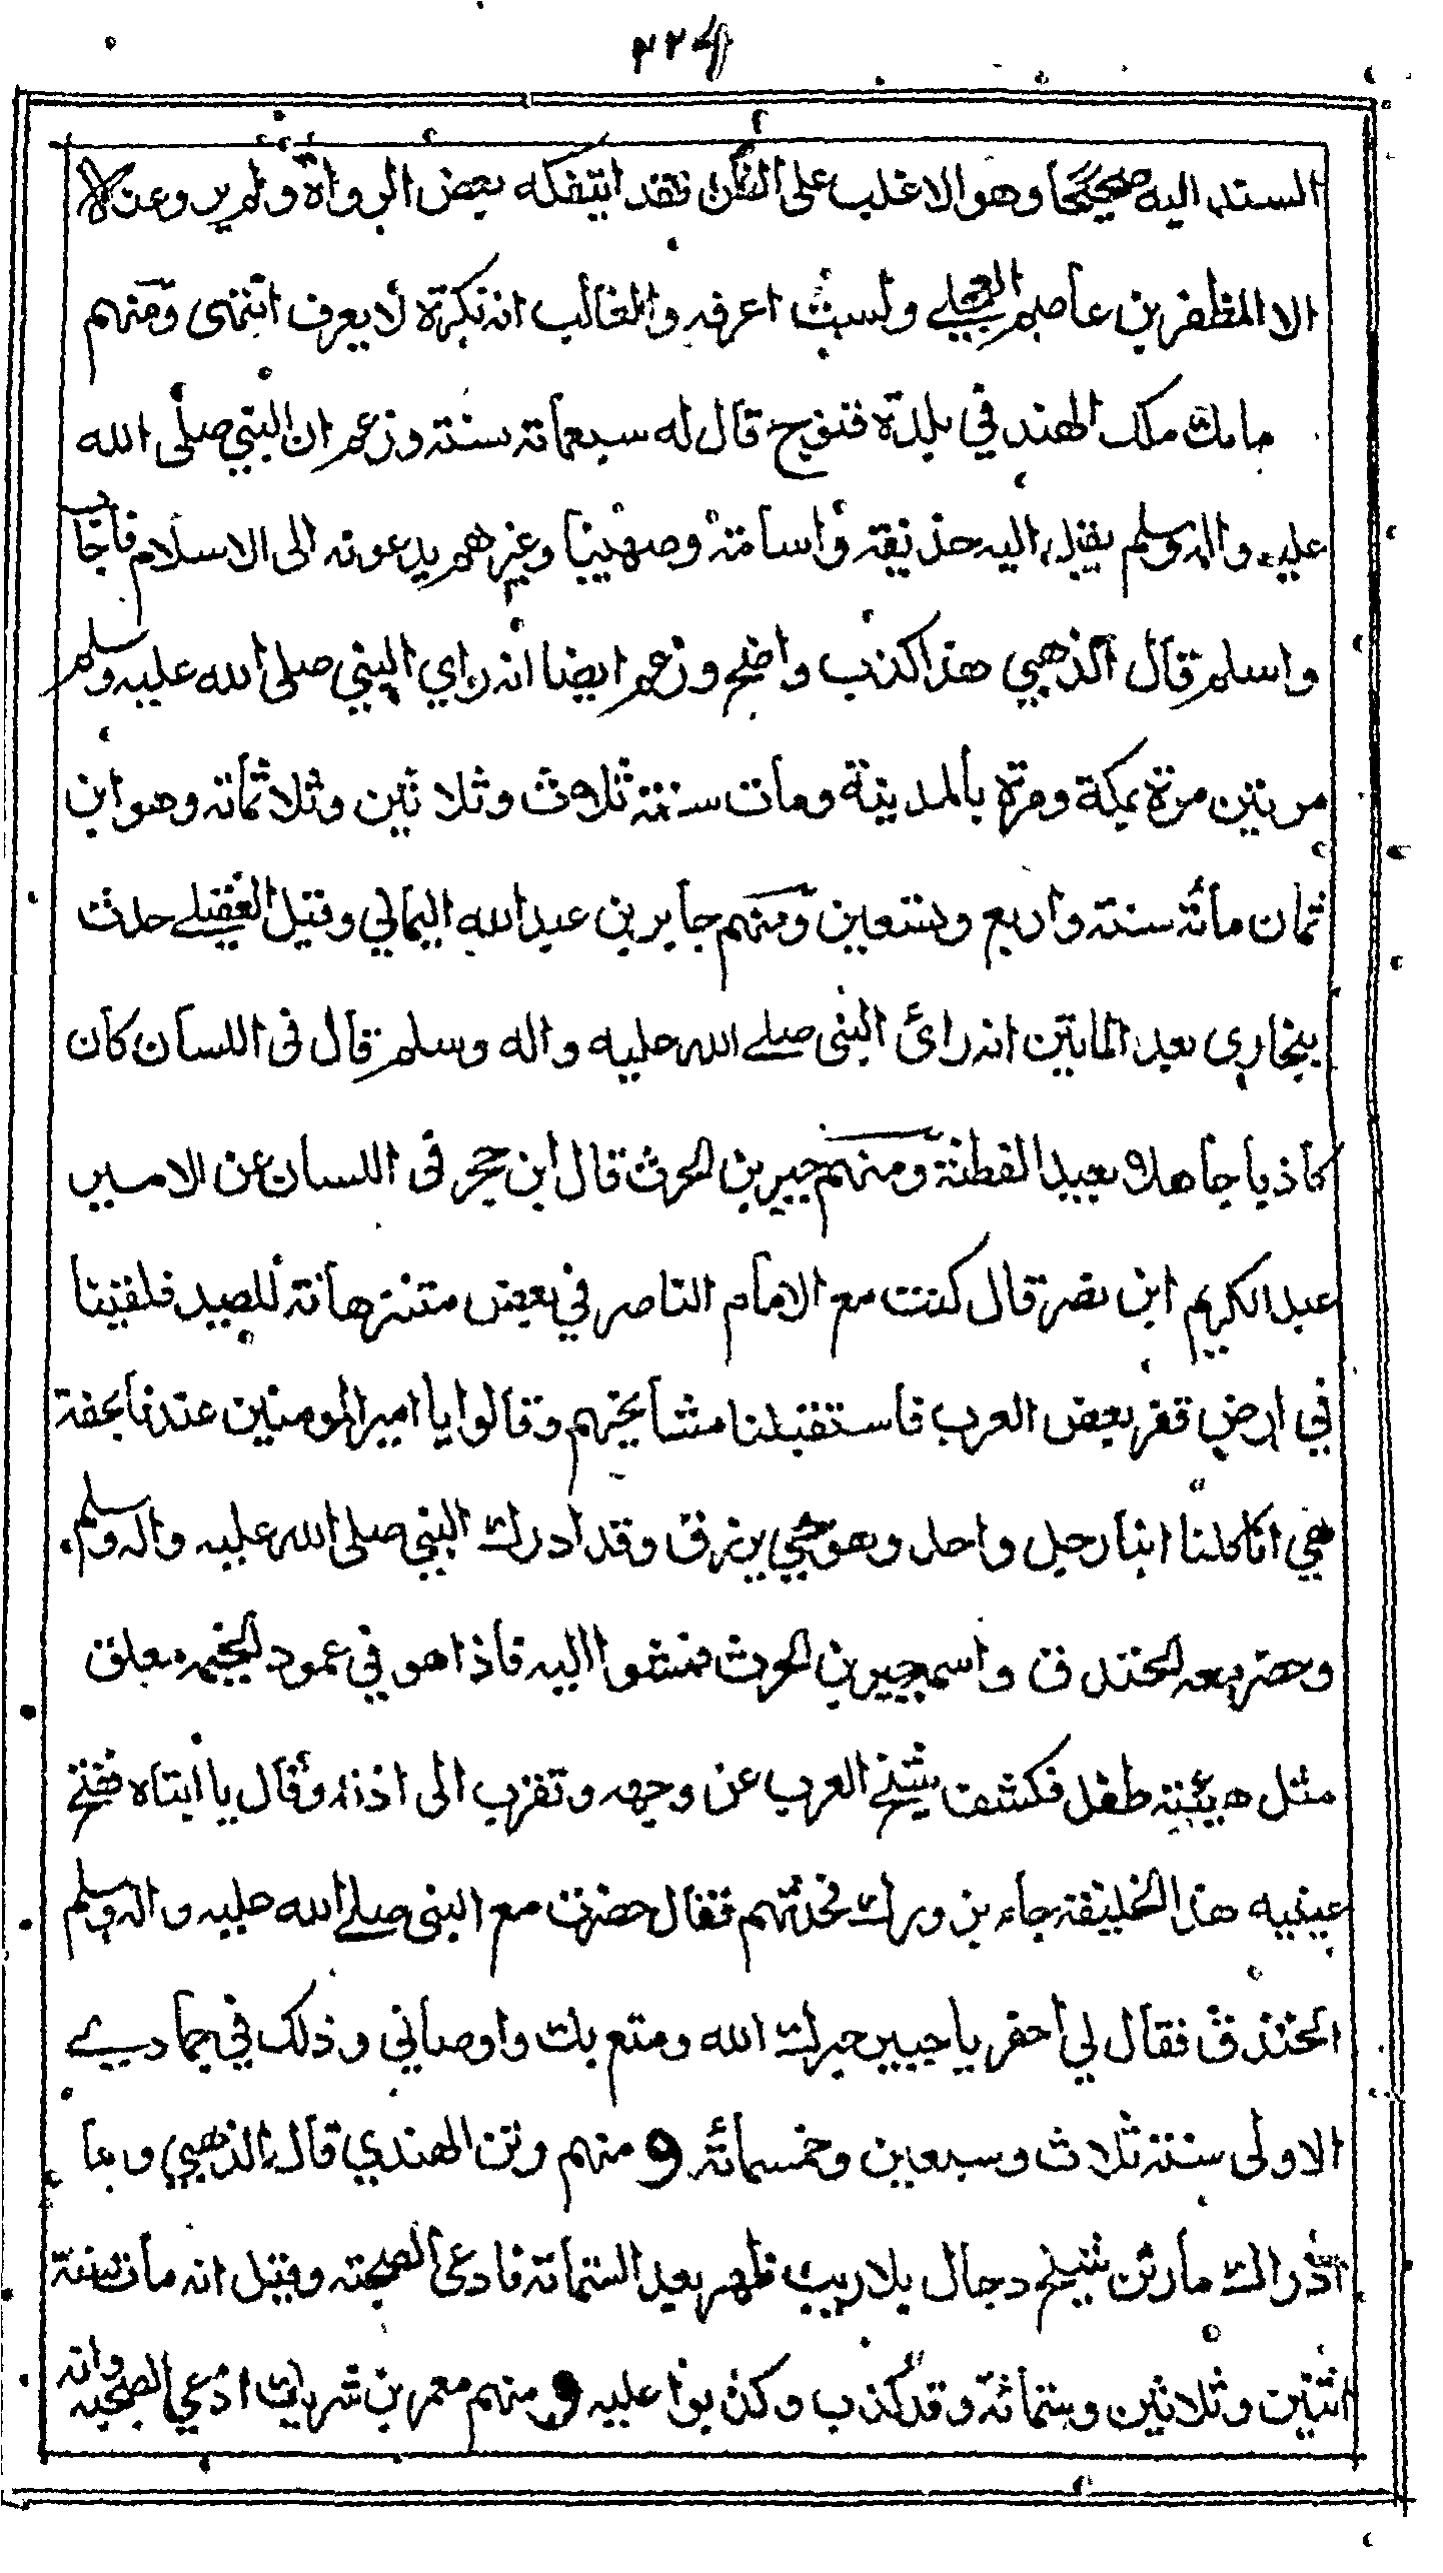 ٢٢٤
السند اليه صحيحا وهو الاغلب على الظن فقد ايتفكه بعض الرواة ولم يرو عنه
الا المظفر بن عاصم العجلي ولست اعرفه والغالب انه نكرة لا يعرف انتهى ومنهم
مابك ملك الهند في بلدة قنوج قال له سبعمائة سنة وزعم ان النبي صلى الله
عليه واله وسلم يقبل اليه حذيفة واسامة وصهيبا وغيرهم يدعونه الى الاسلام فاجاب
واسلم قال الذهبي هذا كذب واضح وزعم ايضا انه راي النبي صلى الله عليه وسلم
مرتين مرة بمكة ومرة بالمدينة ومات سنة ثلاث وثلاثين وثلاثمائة وهو ابن
ثمان مائة سنة واربع وتسعين ومنهم جابر بن عبد الله اليمالي وقيل العقيلي حدث
ببخاري بعد المايتين انه رائ النبي صلى الله عليه واله وسلم قال في اللسان كان
كاذبا جاهلا بعيد الفطنة ومنهم جبير بن الحرث قال ابن حجر في اللسان عن الامير
عبد الكريم ابن نصرة قال كنت مع الامام الناصر في بعض متنزهاته للصيد فلقينا
في ارض قفر بعض العرب فاستقبلنا مشايخهم وقالوا يا امير المومنين عندنا تحفة
هي انا كلنا ابنا رجل واحد وهو حي يرزق وقد ادرك النبي صلى الله عليه واله وسلم
وحضر معه الخندق واسمه جبير بن الحرث فمشوا اليه فاذا هو في عمود الخيمه معلق
مثل هيئة طفل فكشف شيخ العرب عن وجهه وتقرب الى اذنه وقال يا ابتاه ففتح
عينيه هذا الخليفة جاء يزورك فحدثهم فقال حضرت مع النبي صلى الله عليه واله وسلم
الخندق فقال لي احفر يا جبير جبرك الله ومتع بك واوصاني وذلك في جمادي
الاولى سنة ثلاث وسبعين وخمسمائة و منهم رتن الهندي قال الذهبي وما
ادراك مارتن شيخ دجال بلا ريب ظهر بعد الستمائة فادعى الصحبة وقيل انه مات سنة
اثنين وثلاثين وستمائة وقد كذب وكذبوا عليه و منهم معمر بن شريك ادعي الصحبه وانه